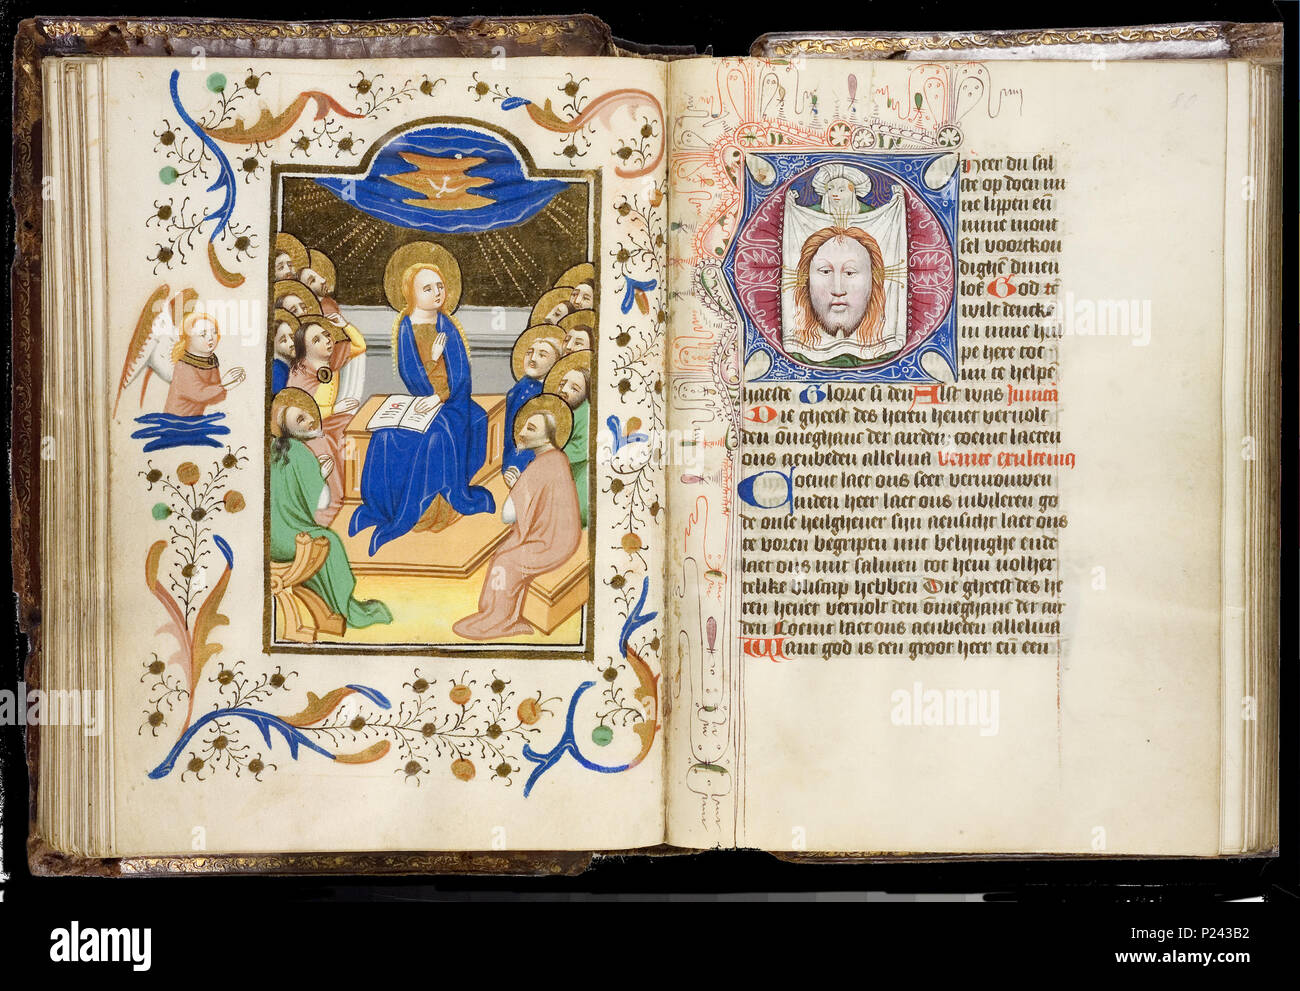 Heer du sal
ste op doen mi
ne lippen en̄
mine mont
sel voortkon
dighē dinen
lof God tē
wilt denckē
in mine hul
pe here tot
mi te helpē
haeste Glorie si den Alst was Invita
Die gheest des heren hevet vervolt
den ōmeghanc der aerden coemt laeten
ons aenbeden alleluia Venite exultemꝰ
Coemt laet ons seer verwouwen
inden heer laet ons iubileren go
de onse heilgheuer sijn aensicht laet ons
te voren begripen mit belijnghe ende
laet ons mit salmen tot hem vȯlher
telike bliscap hebben Die gheest des he
ren hevet vervolt den ōmeghanc der aer
den Coemt laet ons aenbeden alleluia
Want god is een groot heer en̄ een
80
alamy
alamy
Image ID: P243B2
www.alamy.com